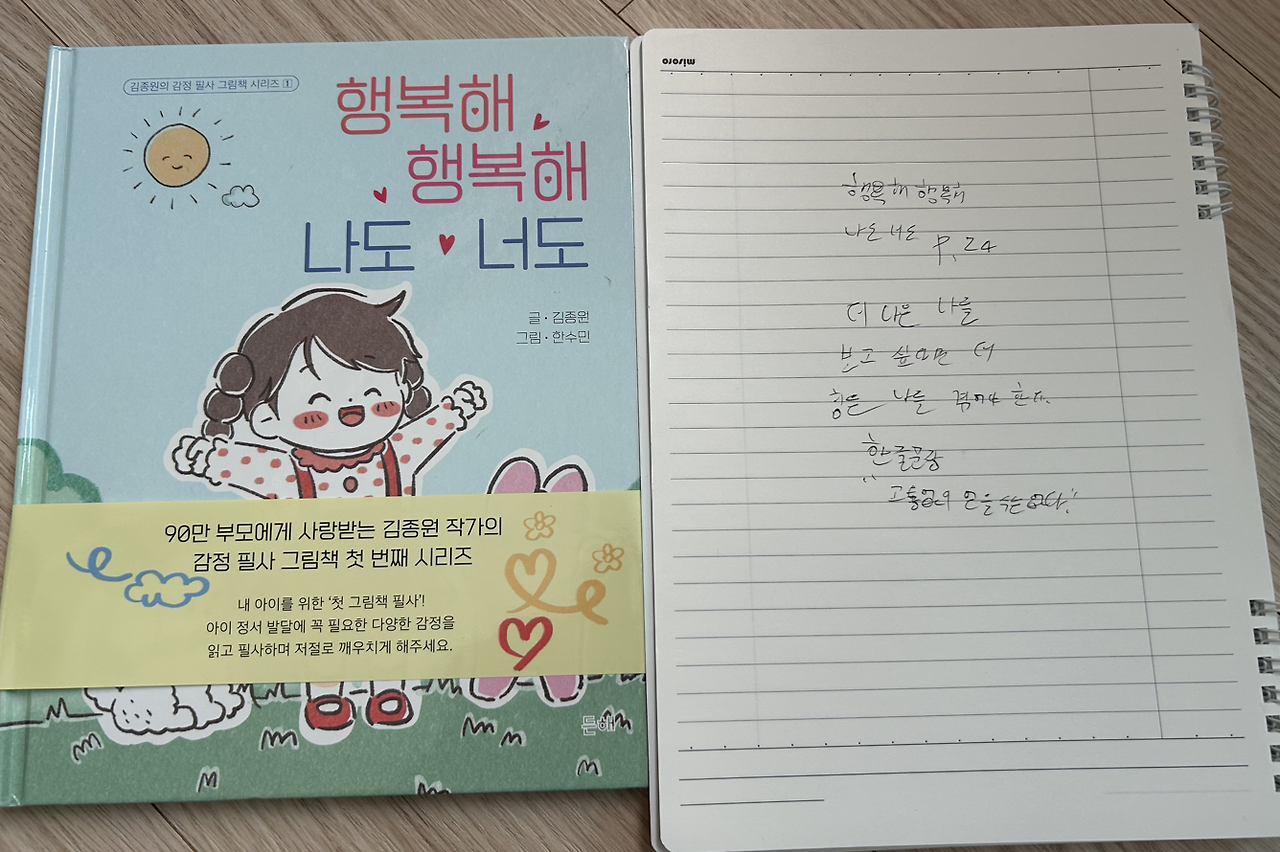 김종원의 감정 필사 그림책 시리즈 1
행복해
행복해
나도 너도
글·김종원
그림·한수민
90만 부모에게 사랑받는 김종원 작가의
감정 필사 그림책 첫 번째 시리즈
내 아이를 위한 '첫 그림책 필사'!
아이 정서 발달에 꼭 필요한 다양한 감정을
읽고 필사하며 저절로 깨우치게 해주세요.
든해
행복해 행복해
나도 너도 P. 24
더 나은 나를
보고 싶으면 더
힘든 나를 겪어야 한다.
한글문장
"고통없이 얻을 수는 없다."